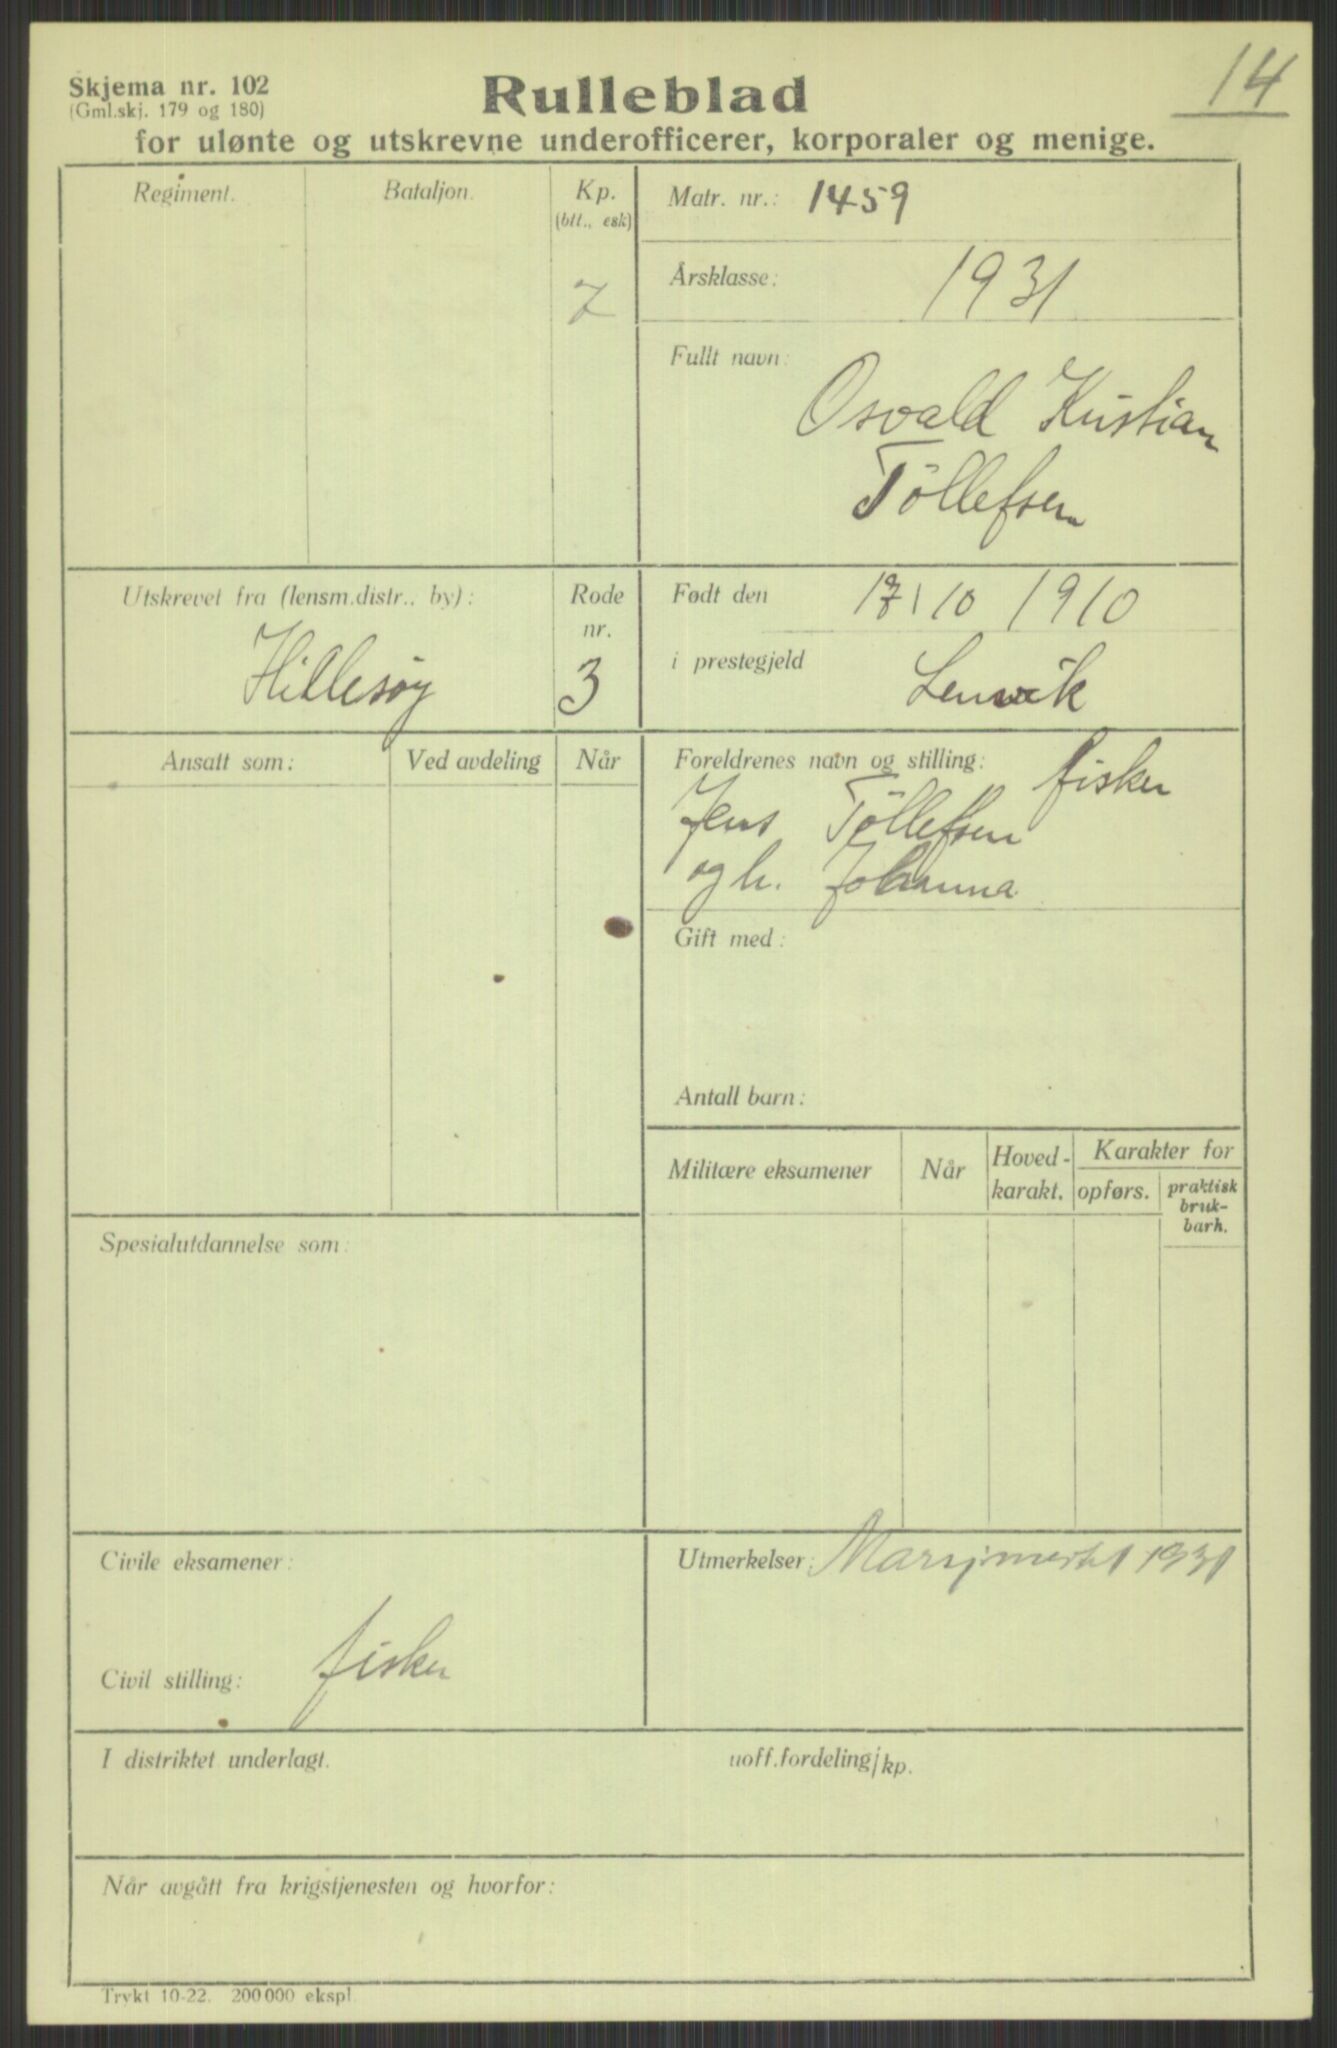 14
Skjema nr. 102
(Gml.skj. 179 og 180)
Rulleblad
for ulønte og utskrevne underofficerer, korporaler og menige.
Regiment.
Bataljon.
Kp.
(btt., esk)
7
Matr. nr.: 1459
Årsklasse: 1931
Fullt navn:
Osvald Kristian
Töllefsen
Utskrevet fra (lensm.distr.. by):
Hillesøy
Rode
nr.
3
Født den 17/10 1910
i prestegjeld Lenvik
Ansatt som:
Ved avdeling
Når
Foreldrenes navn og stilling: fisker
Jens Töllefsen
og h. Johanna
Gift med:
Antall barn:
Militære eksamener
Når
Hoved-
karakt.
Karakter for
opførs.
praktisk
bruk-
barh.
Spesialutdannelse som:
Civile eksamener:
Civil stilling: fisker
Utmerkelser: 1931
I distriktet underlagt.
uoff.fordeling/kp.
Når avgått fra krigstjenesten og hvorfor:
Trykt 10-22. 200 000 ekspl.